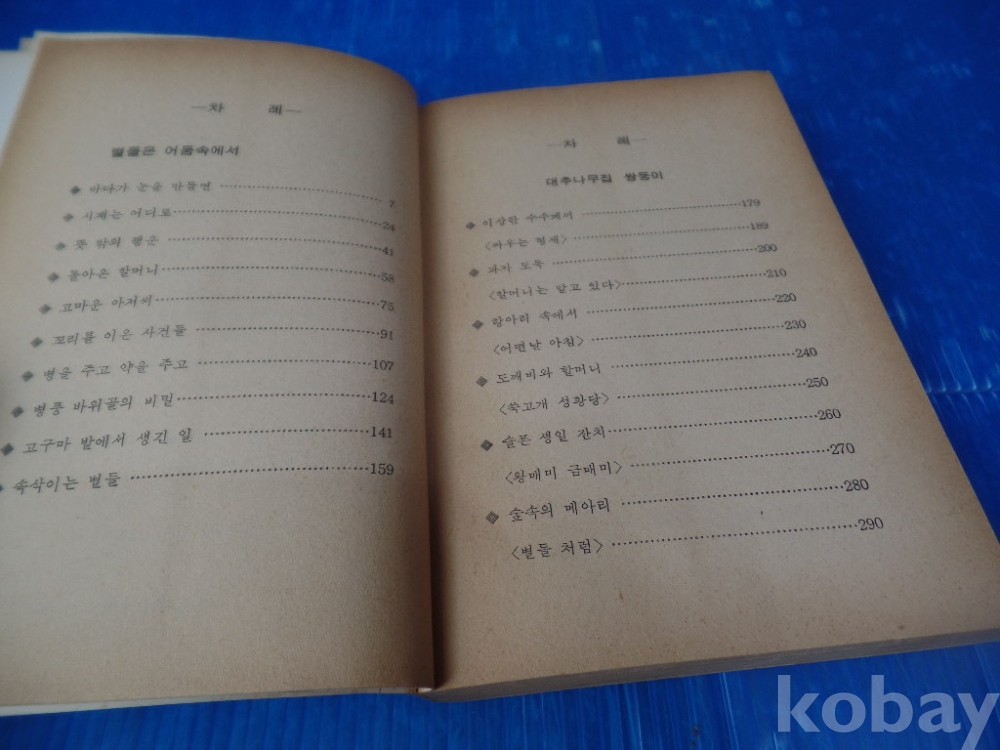 —차 례—
별들은 어둠속에서
◆ 바다가 눈을 만들면 ……………… 7
◆ 시계는 어디로 ……………… 24
◆ 뜻 밖의 행운 ……………… 41
◆ 돌아온 할머니 ……………… 58
◆ 고마운 아저씨 ……………… 75
◆ 꼬리를 이은 사건들 ……………… 91
◆ 병을 주고 약을 주고 ……………… 107
◆ 병풍 바위골의 비밀 ……………… 124
◆ 고구마 밭에서 생긴 일 ……………… 141
◆ 속삭이는 별들 ……………… 159
—차 례—
대추나무집 쌍둥이
◆ 이상한 수수께끼 ……………… 179
〈싸우는 형제〉 ……………… 189
◆ 과자 도둑 ……………… 200
〈할머니는 알고 있다〉 ……………… 210
◆ 항아리 속에서 ……………… 220
〈어떤날 아침〉 ……………… 230
◆ 도깨비와 할머니 ……………… 240
〈쑥고개 성황당〉 ……………… 250
◆ 슬픈 생일 잔치 ……………… 260
〈왕매미 금매미〉 ……………… 270
◆ 숲속의 메아리 ……………… 280
〈별들 처럼〉 ……………… 290
kobay